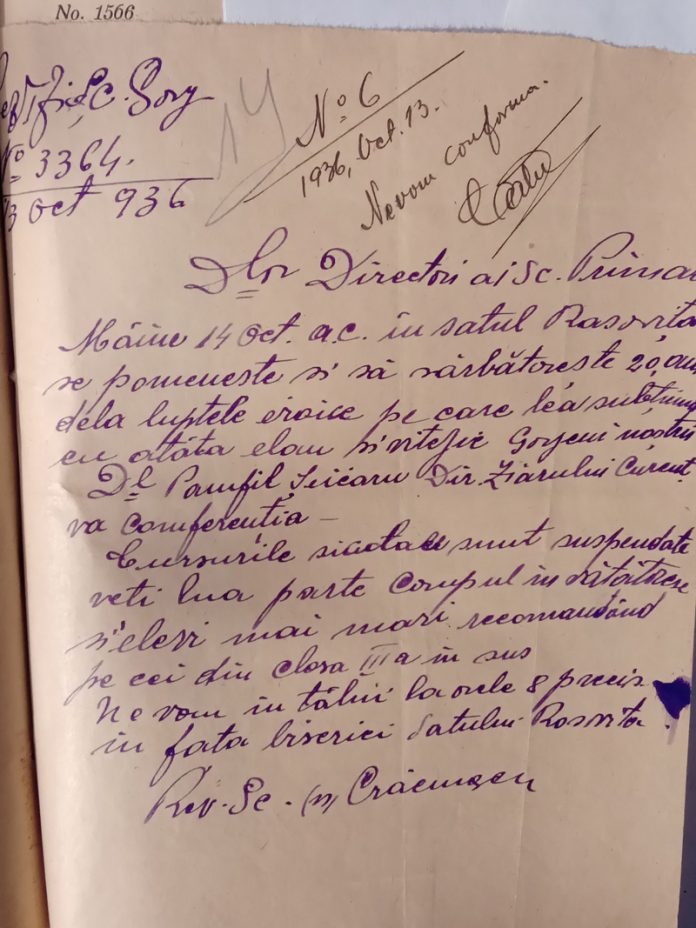 No. 1566
Sc. Gorj
No 3364.
13 Oct 936
14
No 6
1936, Oct. 13.
Ne vom conforma.
Dlor Directori ai Sc. Primar
Mâine 14 Oct. a.c. în satul Rasovita
se pomeneste si să sărbătoreste 20 ani
dela luptele eroice pe care le-a subtinut
cu atâta elan si vitejie Gorjenii nostri
Dl Pamfil Seicaru Dir. Ziarului Curent,
va comferentia –
Cursurile scolare sunt suspendate
veti lua parte corpul învătătoresc
si elevi mai mari recomandând
pe cei din clasa III a în sus
Ne vom întâlni la orele 8 precis
în fata biserici satului Rasovita.
Rev. Sc. (ss) Crăciunescu